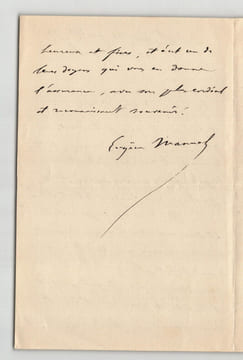 heureux et fiers, et c'est un de
leurs doyens qui vous en donne
l'assurance, avec son plus cordial
et reconnaissant souvenir!
Eugène Manuel